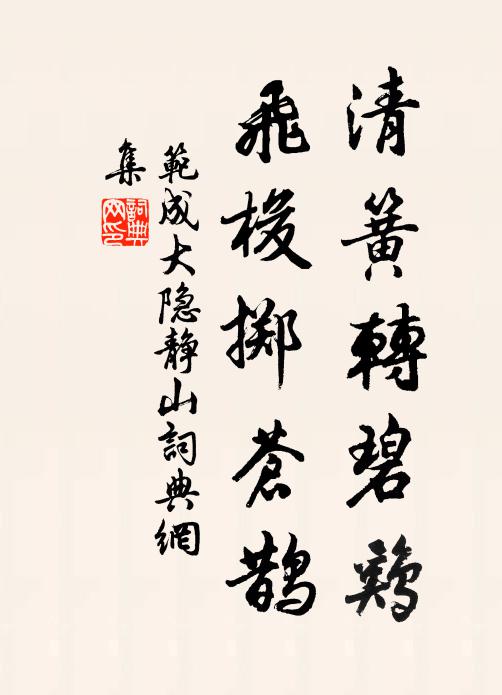 清簧轉碧鷄
飛梭掷蒼鵲
範成大隐静山詞典網
集
詞典網印